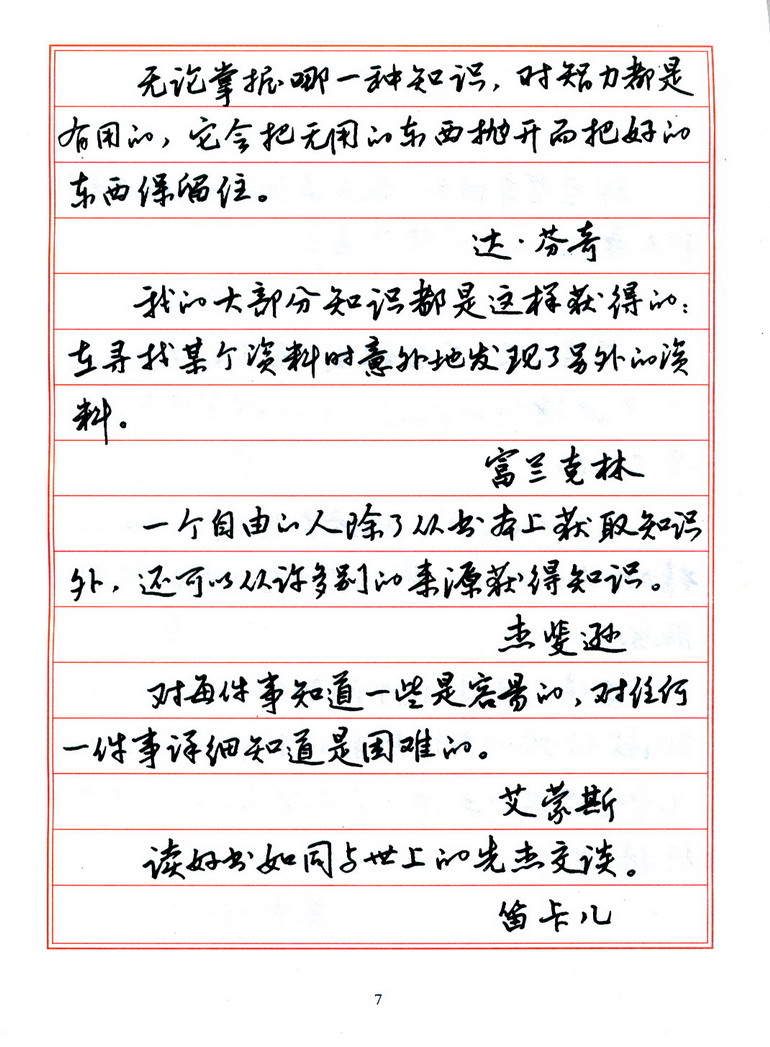 无论掌握哪一种知识，对智力都是
有用的，它会把无用的东西抛开而把好的
东西保留住。
达·芬奇
我的大部分知识都是这样获得的：
在寻找某个资料时意外地发现了另外的资
料。
富兰克林
一个自由的人除了从书本上获取知识
外，还可以从许多别的来源获得知识。
杰斐逊
对每件事知道一些是容易的，对任何
一件事详细知道是困难的。
艾蒙斯
读好书如同与世上的先杰交谈。
笛卡儿
7